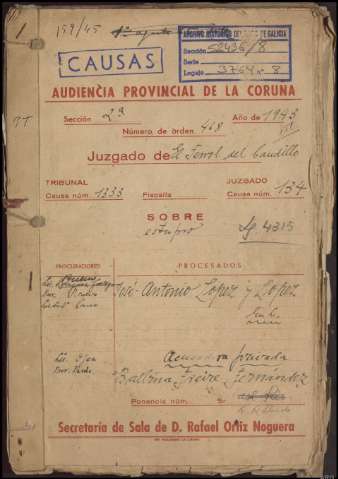 159/45
ARCHIVO HISTORICO DEL REINO DE GALICIA
Sección 52436/8
Serie
Legajo 3764 n. 8
CAUSAS
AUDIENCIA PROVINCIAL DE LA CORUÑA
Sección 2ª Año de 1943
Número de orden 468
Juzgado de El Ferrol del Caudillo
TRIBUNAL JUZGADO
Causa núm. 1333 Fiscalía Causa núm. 134
SOBRE
estupro Lg. 4315
PROCURADORES PROCESADOS
José-Antonio Lopez y Lopez
Acusadora privada
Balbina Freire Fernández
Ponencia núm. Sr.
Secretaría de Sala de D. Rafael Ortiz Noguera